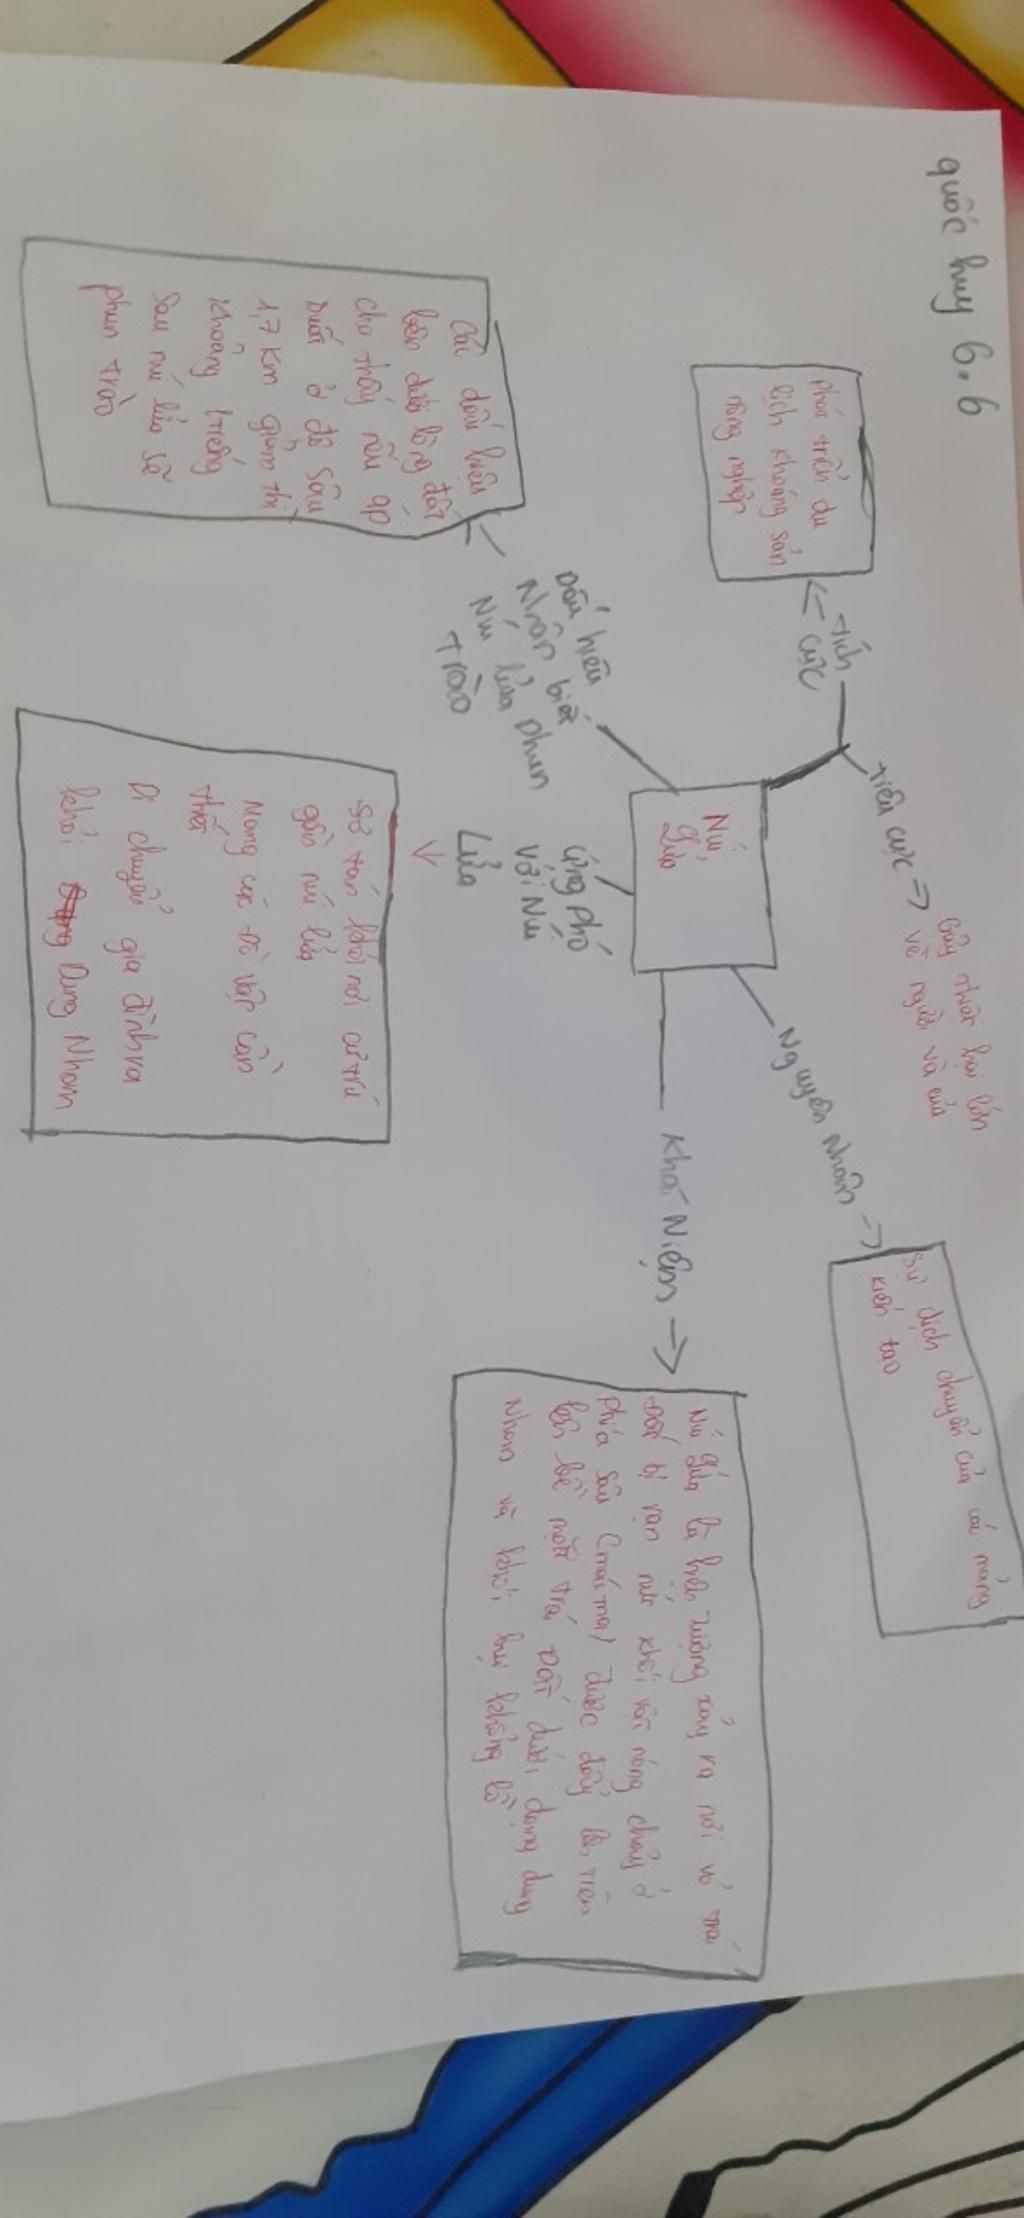 quốc huy 6.6
Phát triển du
lịch khoáng sản
nông nghiệp
tích
cực
tiêu cực
Gây thiệt hại lớn
về người và của
Các dấu hiệu
bên dưới lòng đất
cho thấy nếu áp
suất ở độ sâu
1,7 km giảm thì
khoảng tiếng
sau núi lửa sẽ
phun trào
Dấu hiệu
Nhận biết
Núi lửa phun
Trào
Núi
lửa
Nguyên Nhân
Sự dịch chuyển của các mảng
kiến tạo
Khái Niệm
Núi lửa là hiện tượng xảy ra nơi vỏ trái
Đất bị rạn nứt khối vật nóng chảy ở
phía sâu (mác ma) được đẩy lên trên
bề mặt trái Đất dưới dạng dung
Nham và khói bụi khổng lồ
Ứng phó
với Núi
Lửa
Sơ tán khỏi nơi cư trú
gần núi lửa
Mang các đồ vật cần
thiết
Di chuyển gia đình ra
khỏi Dung Nham